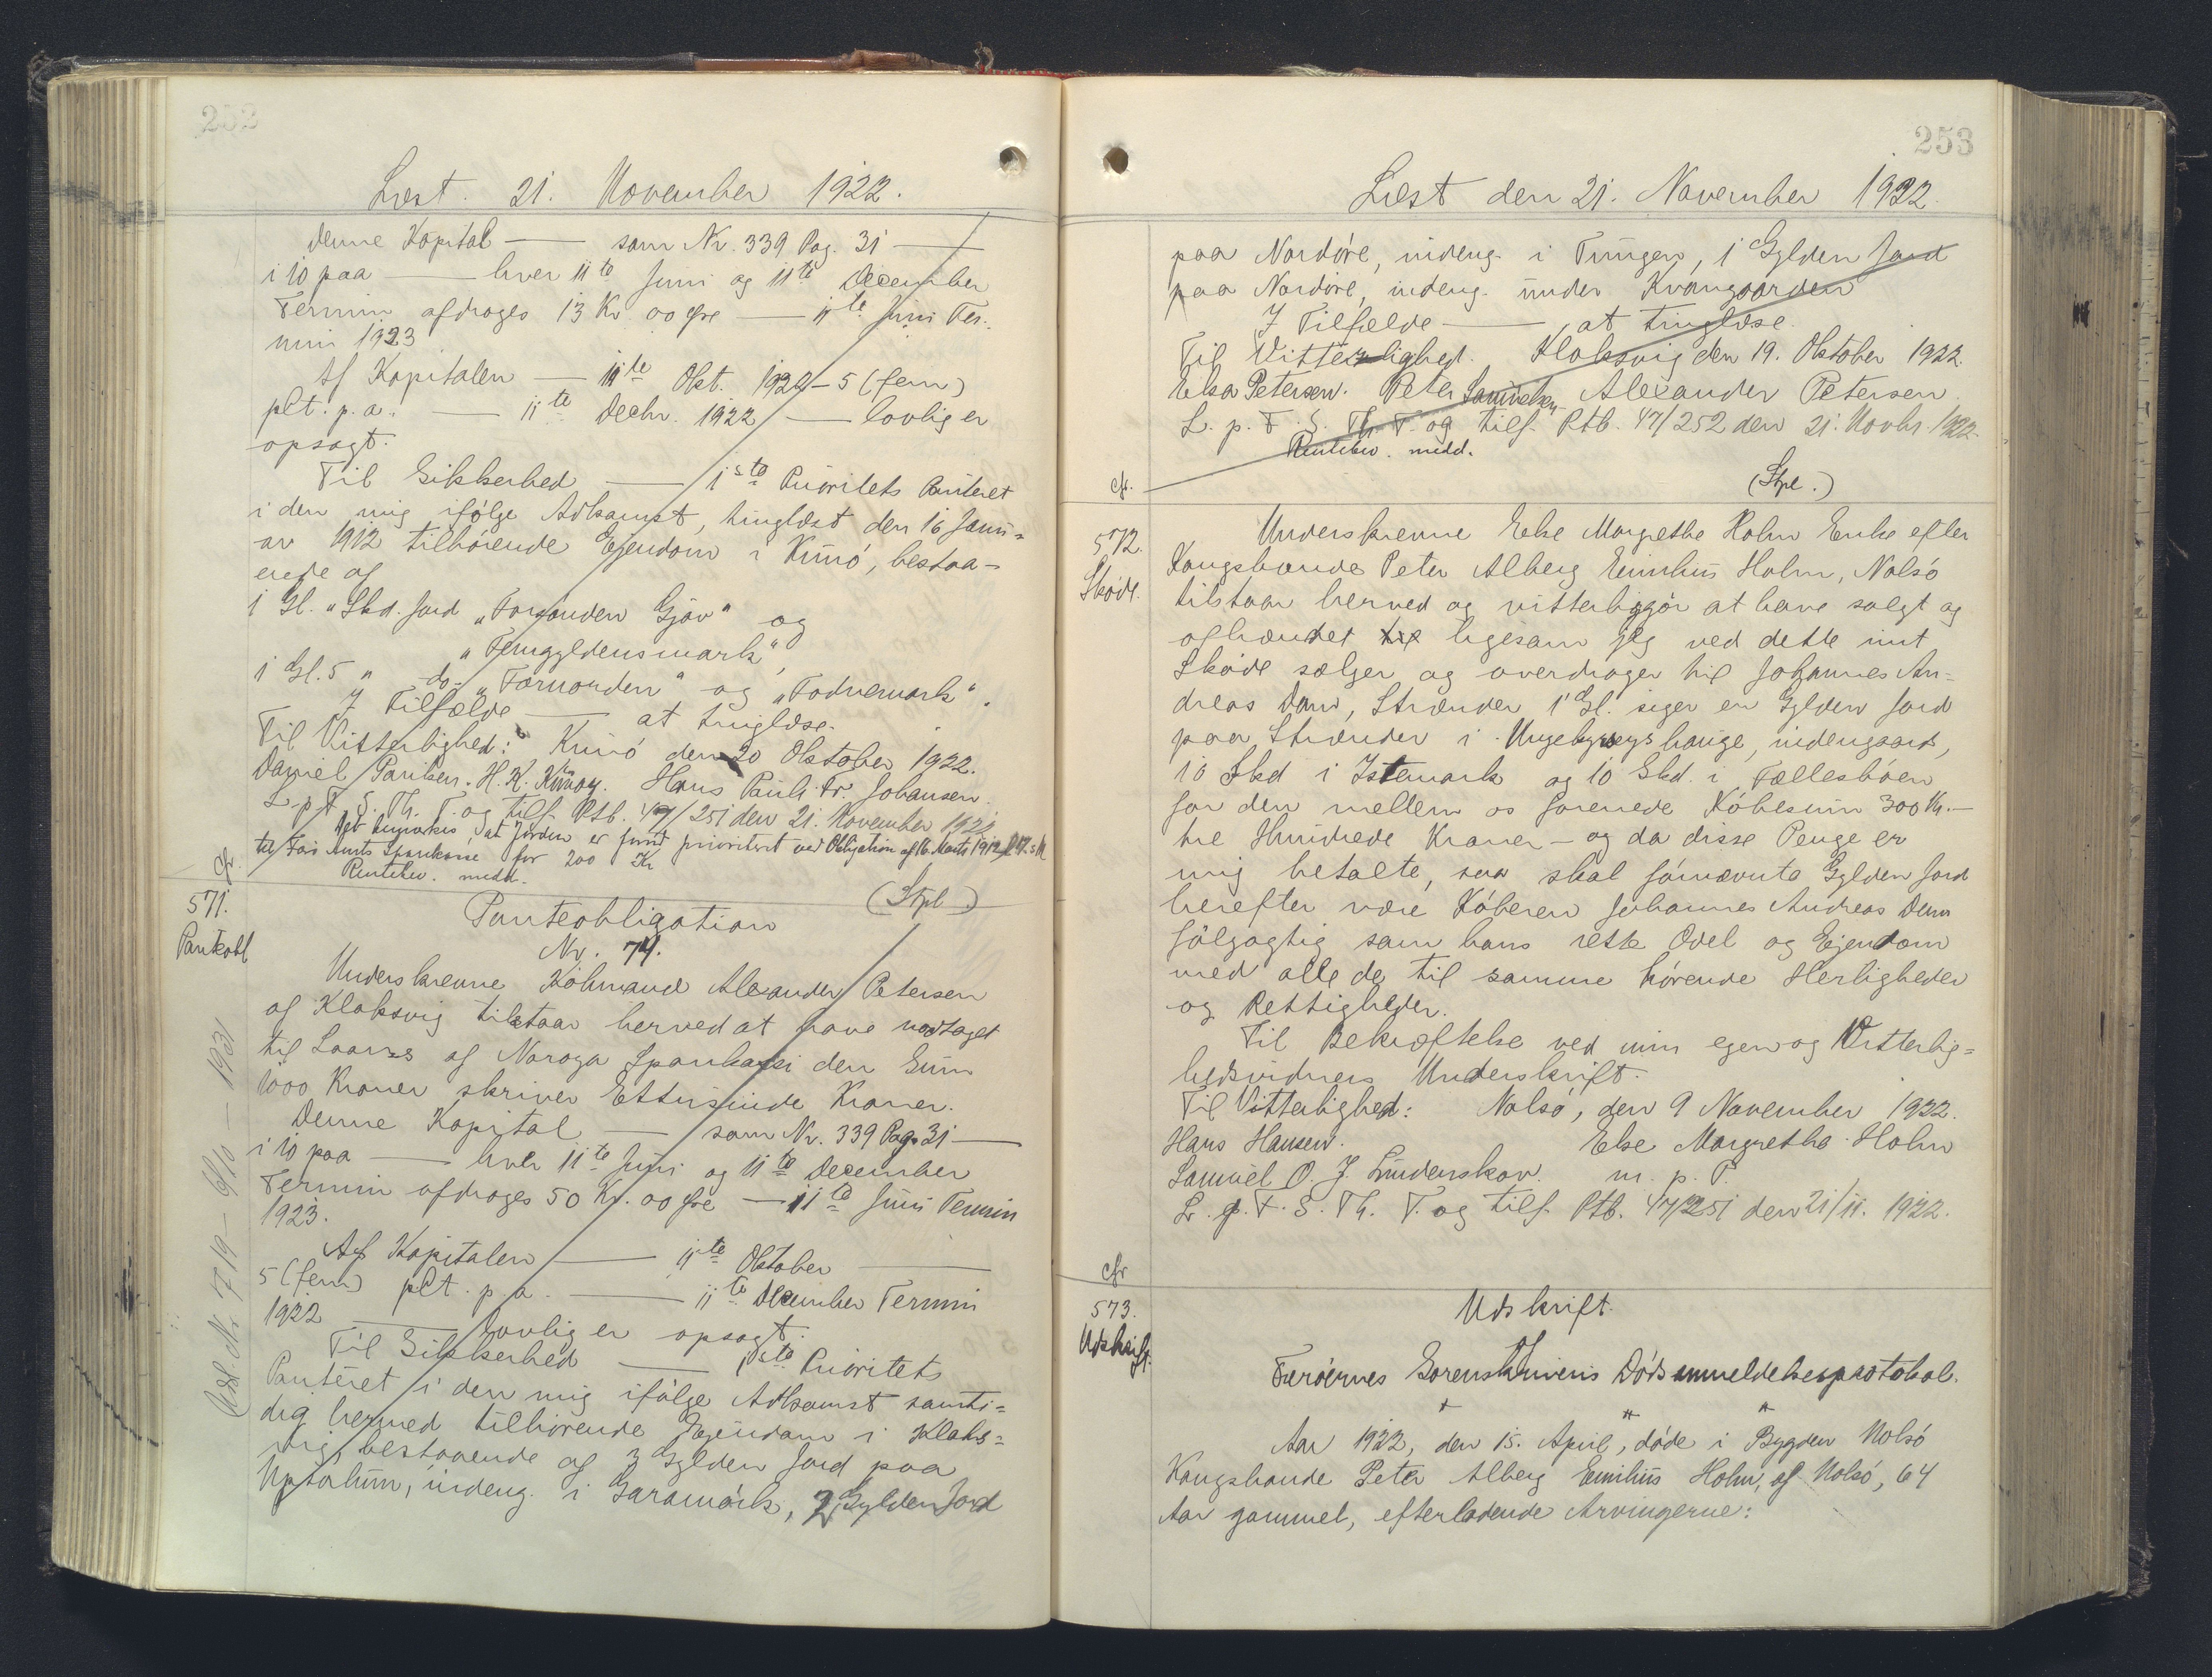 252
Læst. 21. November 1922.
denne Kapital — som Nr. 339 Pag. 31 —
i 10 paa — hver 11te Juni og 11te December
Termin afdrages 13 Kr. 00 Øre — 11te Juni Ter-
min 1923
Af Kapitalen — 11te Okt. 1922 — 5 (fem)
pCt. p. a. — 11te Decbr. 1922 — lovlig er
opsagt.
Til Sikkerhed — 1ste Prioritets Panteret
i den mig ifølge Adkomst, tinglæst den 16 Janu=
ar 1912 tilhørende Ejendom i Kunø, bestaa-
ende af
1 Gl. " Skd. Jord "Foruonden Gjøv" og
"Femgyldensmark",
1 Gl. 5 " do- "Foruonden" og "Todnemark".
I Tilfælde — at tinglæse.
Til Vitterlighed: Kunø den 20 Oktober 1922.
Daniel Paulsen. H. K. Kunoy. Hans Pauli Fr. Johansen.
L. p. F. S. Th. T. og tilf. Ptb. 47/251 den 21. November 1922
Det bemærkes, at Jorden er forud prioriteret ved Obligation af 16. Marts 1912
til Færø Amts Sparekasse for 200 Kr
Rentebev. medd.
cfr.
(Stpl.)
571.
Pantobl
Panteobligation
Nr. 74.
Underskrevne Købmand Alexander Petersen
af Klaksvig tilstaar herved at have modtaget
til Laans af Noroya Sparikassi den Sum
1000 Kroner skriver Ettusinde Kroner.
Denne Kapital — som Nr. 339 Pag. 31 —
i 10 paa — hver 11te Juni og 11te December
Termin afdrages 50 Kr. 00 Øre — 11te Juni Termin
1923.
Af Kapitalen — 11te Oktober —
5 (fem) pCt. p. a. — 11te December Termin
1922 — lovlig er opsagt.
Til Sikkerhed — 1ste Prioritets
Panteret i den mig ifølge Adkomst samti=
dig hermed tilhørende Ejendom i Klaks=
vig bestaaende af 3 Gylden Jord paa
Uptølum, indeng. i Garamørk, 2 Gylden Jord
253
Læst den 21. November 1922.
paa Nordøre, indeng. i Tungen, 1 Gylden Jord
paa Nordøre, indeng. under Kvangaarden
I Tilfælde — at tinglæse.
Til Vitterlighed. Klaksvig den 19. Oktober 1922.
Elsa Petersen. Peter Samuelsen Alexander Petersen.
L. p. F. S. Th. T. og tilf. Ptb. 47/252 den 21. Novbr. 1922.
Rentebev. medd.
cfr.
(Stpl.)
572.
Skøde.
Underskrevne Else Margrethe Holm Enke efter
Kongsbonde Peter Alberg Emilius Holm, Nolsø
tilstaar herved og vitterliggør at have solgt og
afhændet til ligesom jeg ved dette mit
Skøde sælger og overdrager til Johannes An=
dreas Dam, Strænder 1 Gl. siger en Gylden Jord
paa Strænder i hauge, indengaards,
10 Skd i Istemark og 10 Skd. i Fællesbøen
for den mellem os forenede Købesum 300 Kr. —
tre Hundrede Kroner — og da disse Penge er
mig betalte, saa skal fornævnte Gylden Jord
herefter være Køberen Johannes Andreas Dam
følgagtig som hans rette Odel og Ejendom
med alle de til samme hørende Herligheder
og Rettigheder.
Til Bekræftelse ved min egen og Vitterlig=
hedsvidners Underskrift.
Til Vitterlighed: Nolsø, den 9 November 1922.
Hans Hansen. Else Margrethe Holm
Samuel O. J. Lindenskov. m. p. P.
L. p. F. S. Th. T. og tilf. Ptb. 47/251 den 21/11. 1922.
cfr
573.
Udskrift.
Udskrift.
Færøernes Sorenskriveris Dødsanmeldelsesprotokol.
Aar 1922, den 15. April, døde i Bygden Nolsø
Kongsbonde Peter Alberg Emilius Holm, af Nolsø, 64
Aar gammel, efterladende Arvingerne: